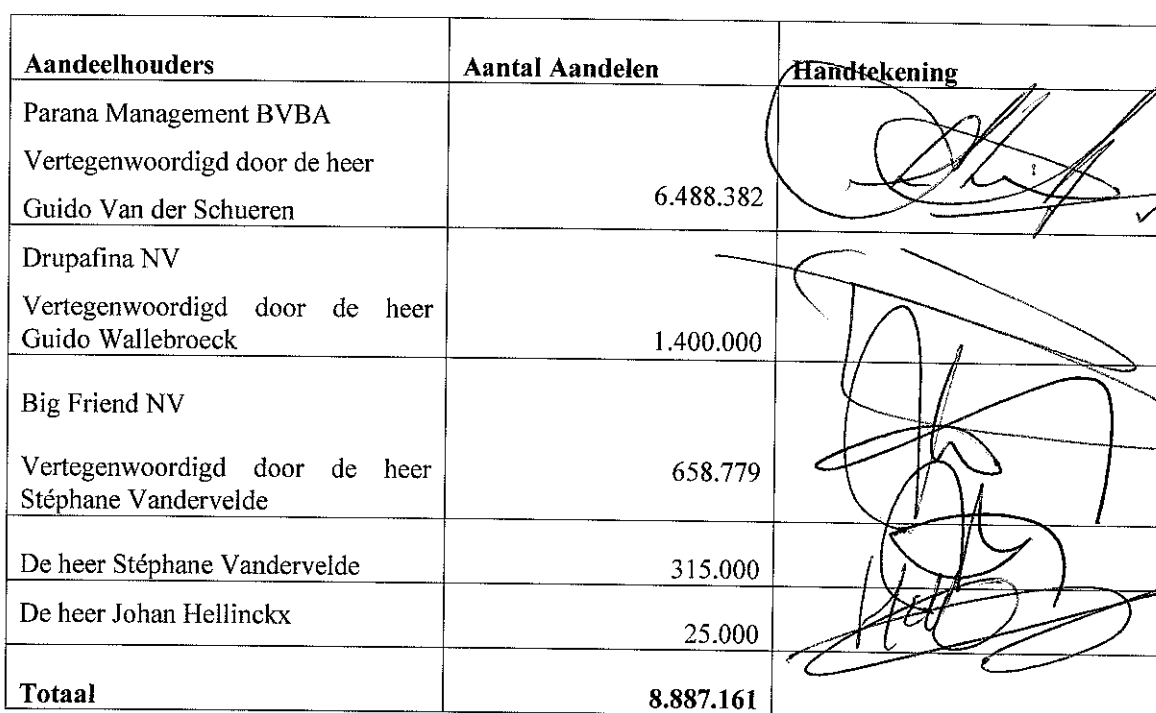 Aandeelhouders Aantal Aandelen Handtekening
Parana Management BVBA
Vertegenwoordigd door de heer
Guido Van der Schueren 6.488.382
Drupafina NV
Vertegenwoordigd door de heer
Guido Wallebroeck 1.400.000
Big Friend NV
Vertegenwoordigd door de heer 658.779
Stéphane Vandervelde
De heer Stéphane Vandervelde 315.000
De heer Johan Hellinckx 25.000
Totaal 8.887.161